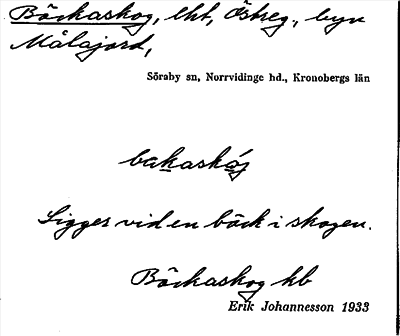 Böckaskog, lht, Östreg., byn
Målajord,
Söraby sn, Norrvidinge hd., Kronobergs län
bakaskój
Ligger vid en bäck i skogen.
Böckaskog hb
Erik Johannesson 1933